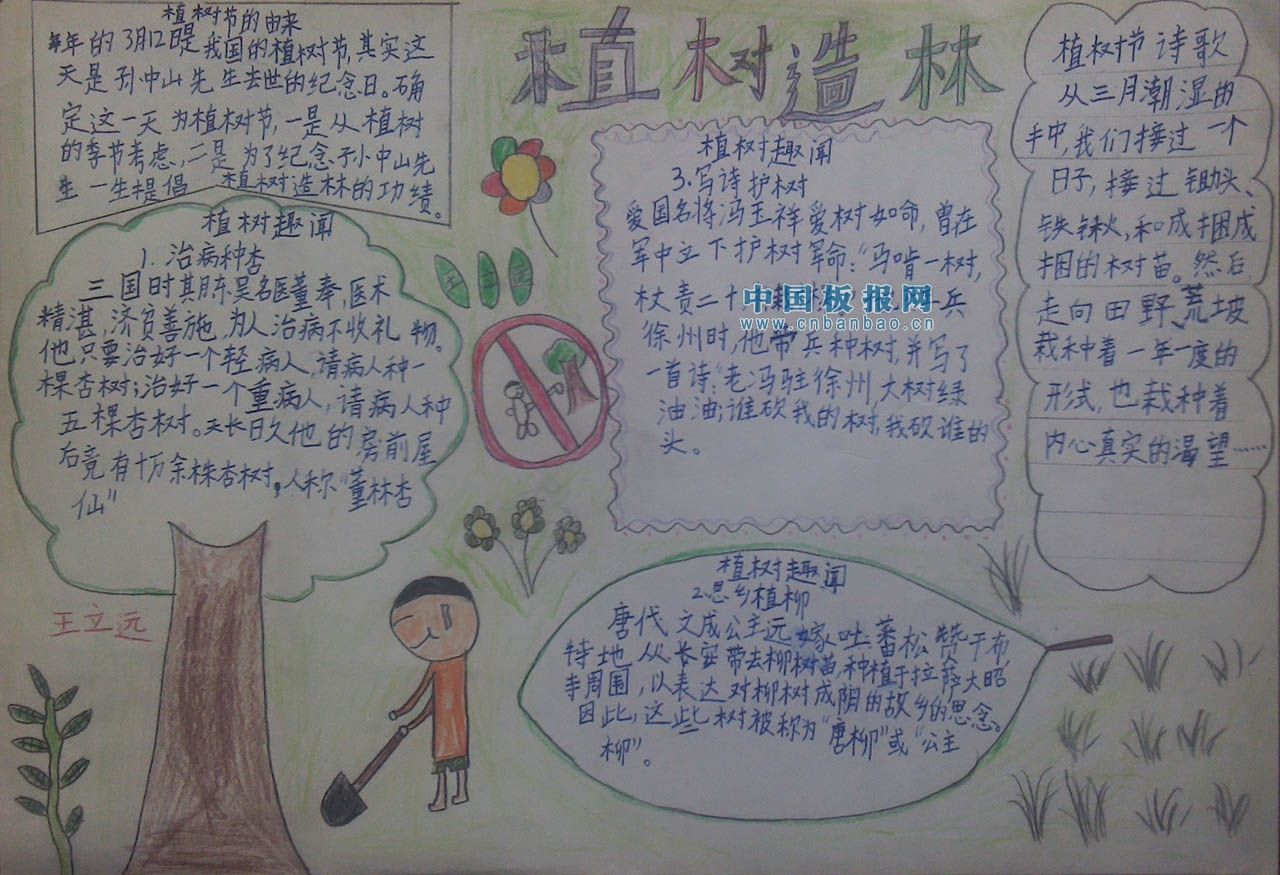 植树造林
植树节的由来
每年的3月12日是我国的植树节,其实这
天是孙中山先生去世的纪念日。确
定这一天为植树节,一是从植树
的季节考虑,二是为了纪念孙中山先
生一生提倡植树造林的功绩。
植树趣闻
1.治病种杏
三国时其东吴名医董奉,医术
精湛,济贫善施,为人治病不收礼物。
他,只要治好一个轻病人,请病人种一
棵杏树;治好一个重病人,请病人种
五棵杏树。天长日久他的房前屋
后竟有十万余株杏树,人称“董林杏
仙”
王立远
王立远
植树趣闻
3.写诗护树
爱国名将冯玉祥爱树如命,曾在
军中立下护树军命:“马啃一树,
杖责二十
兵
中国板报网
www.cnbanbao.cn
徐州时,他带兵种树,并写了
一首诗:“老冯驻徐州,大树绿
油油;谁砍我的树,我砍谁的
头。
植树趣闻
2.思乡植柳
唐代文成公主远嫁吐蕃松赞干布
特地从长安带去柳树苗,种植于拉萨大昭
寺周围,以表达对柳树成阴的故乡的思念。
因此,这些树被称为“唐柳”或“公主
柳”。
植树节诗歌
从三月潮湿的
手中,我们接过一个
日子,接过锄头、
铁锹,和成捆成
捆的树苗。然后,
走向田野、荒坡
栽种着一年一度的
形式,也栽种着
内心真实的渴望……